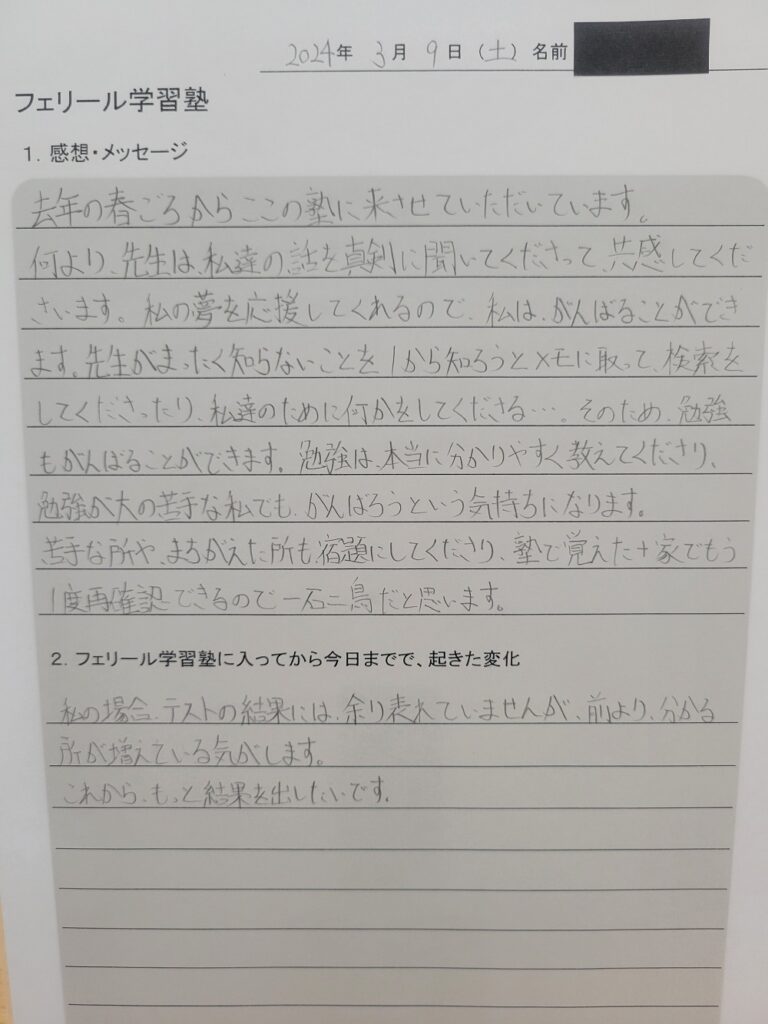 2024年 3月 9日(土)名前
フェリール学習塾
1. 感想・メッセージ
去年の春ごろからここの塾に来させていただいています。
何より、先生は、私達の話を真剣に聞いてくださって、共感してくだ
さいます。私の夢を応援してくれるので、私は、がんばることができ
ます。先生がまったく知らないことを1から知ろうとメモに取って、検索を
してくださったり、私達のために何かをしてくださる…。そのため、勉強
もがんばることができます。勉強は、本当に分かりやすく教えてくださり、
勉強が大の苦手な私でも、がんばろうという気持ちになります。
苦手な所や、まちがえた所も、宿題にしてくださり、塾で覚えた+家でもう
1度再確認できるので一石二鳥だと思います。
2. フェリール学習塾に入ってから今日までで、起きた変化
私の場合、テストの結果には、余り表れていませんが、前より、分かる
所が増えている気がします。
これから、もっと結果を出したいです。